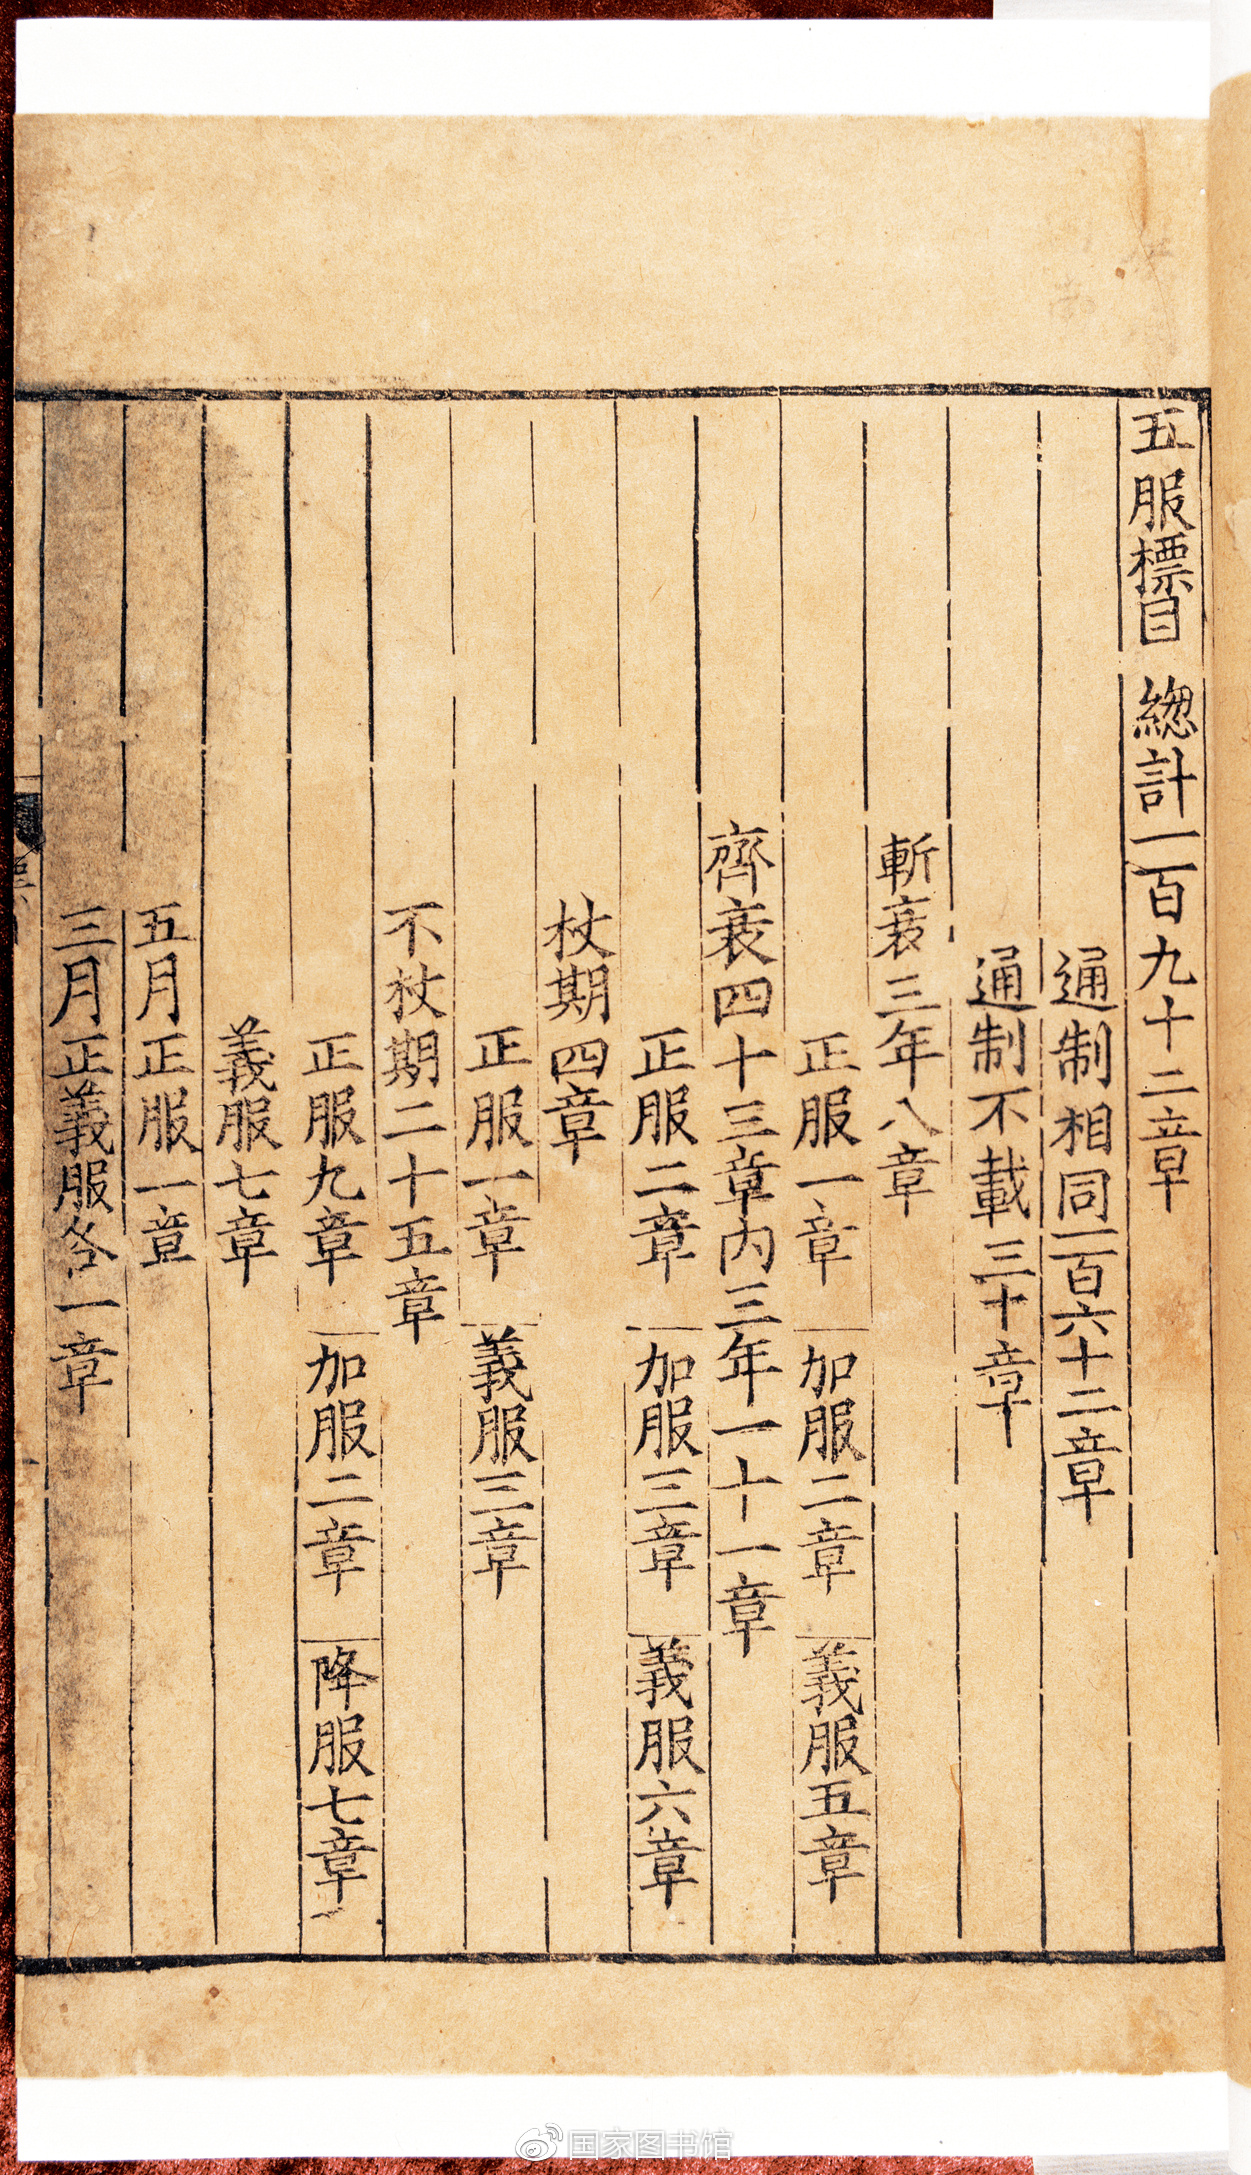 五服標目 總計一百九十二章
通制相同一百六十二章
通制不載三十章
斬衰三年八章
正服一章 加服二章 義服五章
齊衰四十三章内三年一十一章
正服二章 加服三章 義服六章
杖期四章
正服一章 義服三章
不杖期二十五章
正服九章 加服二章 降服七章
義服七章
五月正服一章
三月正義服各一章
国家图书馆